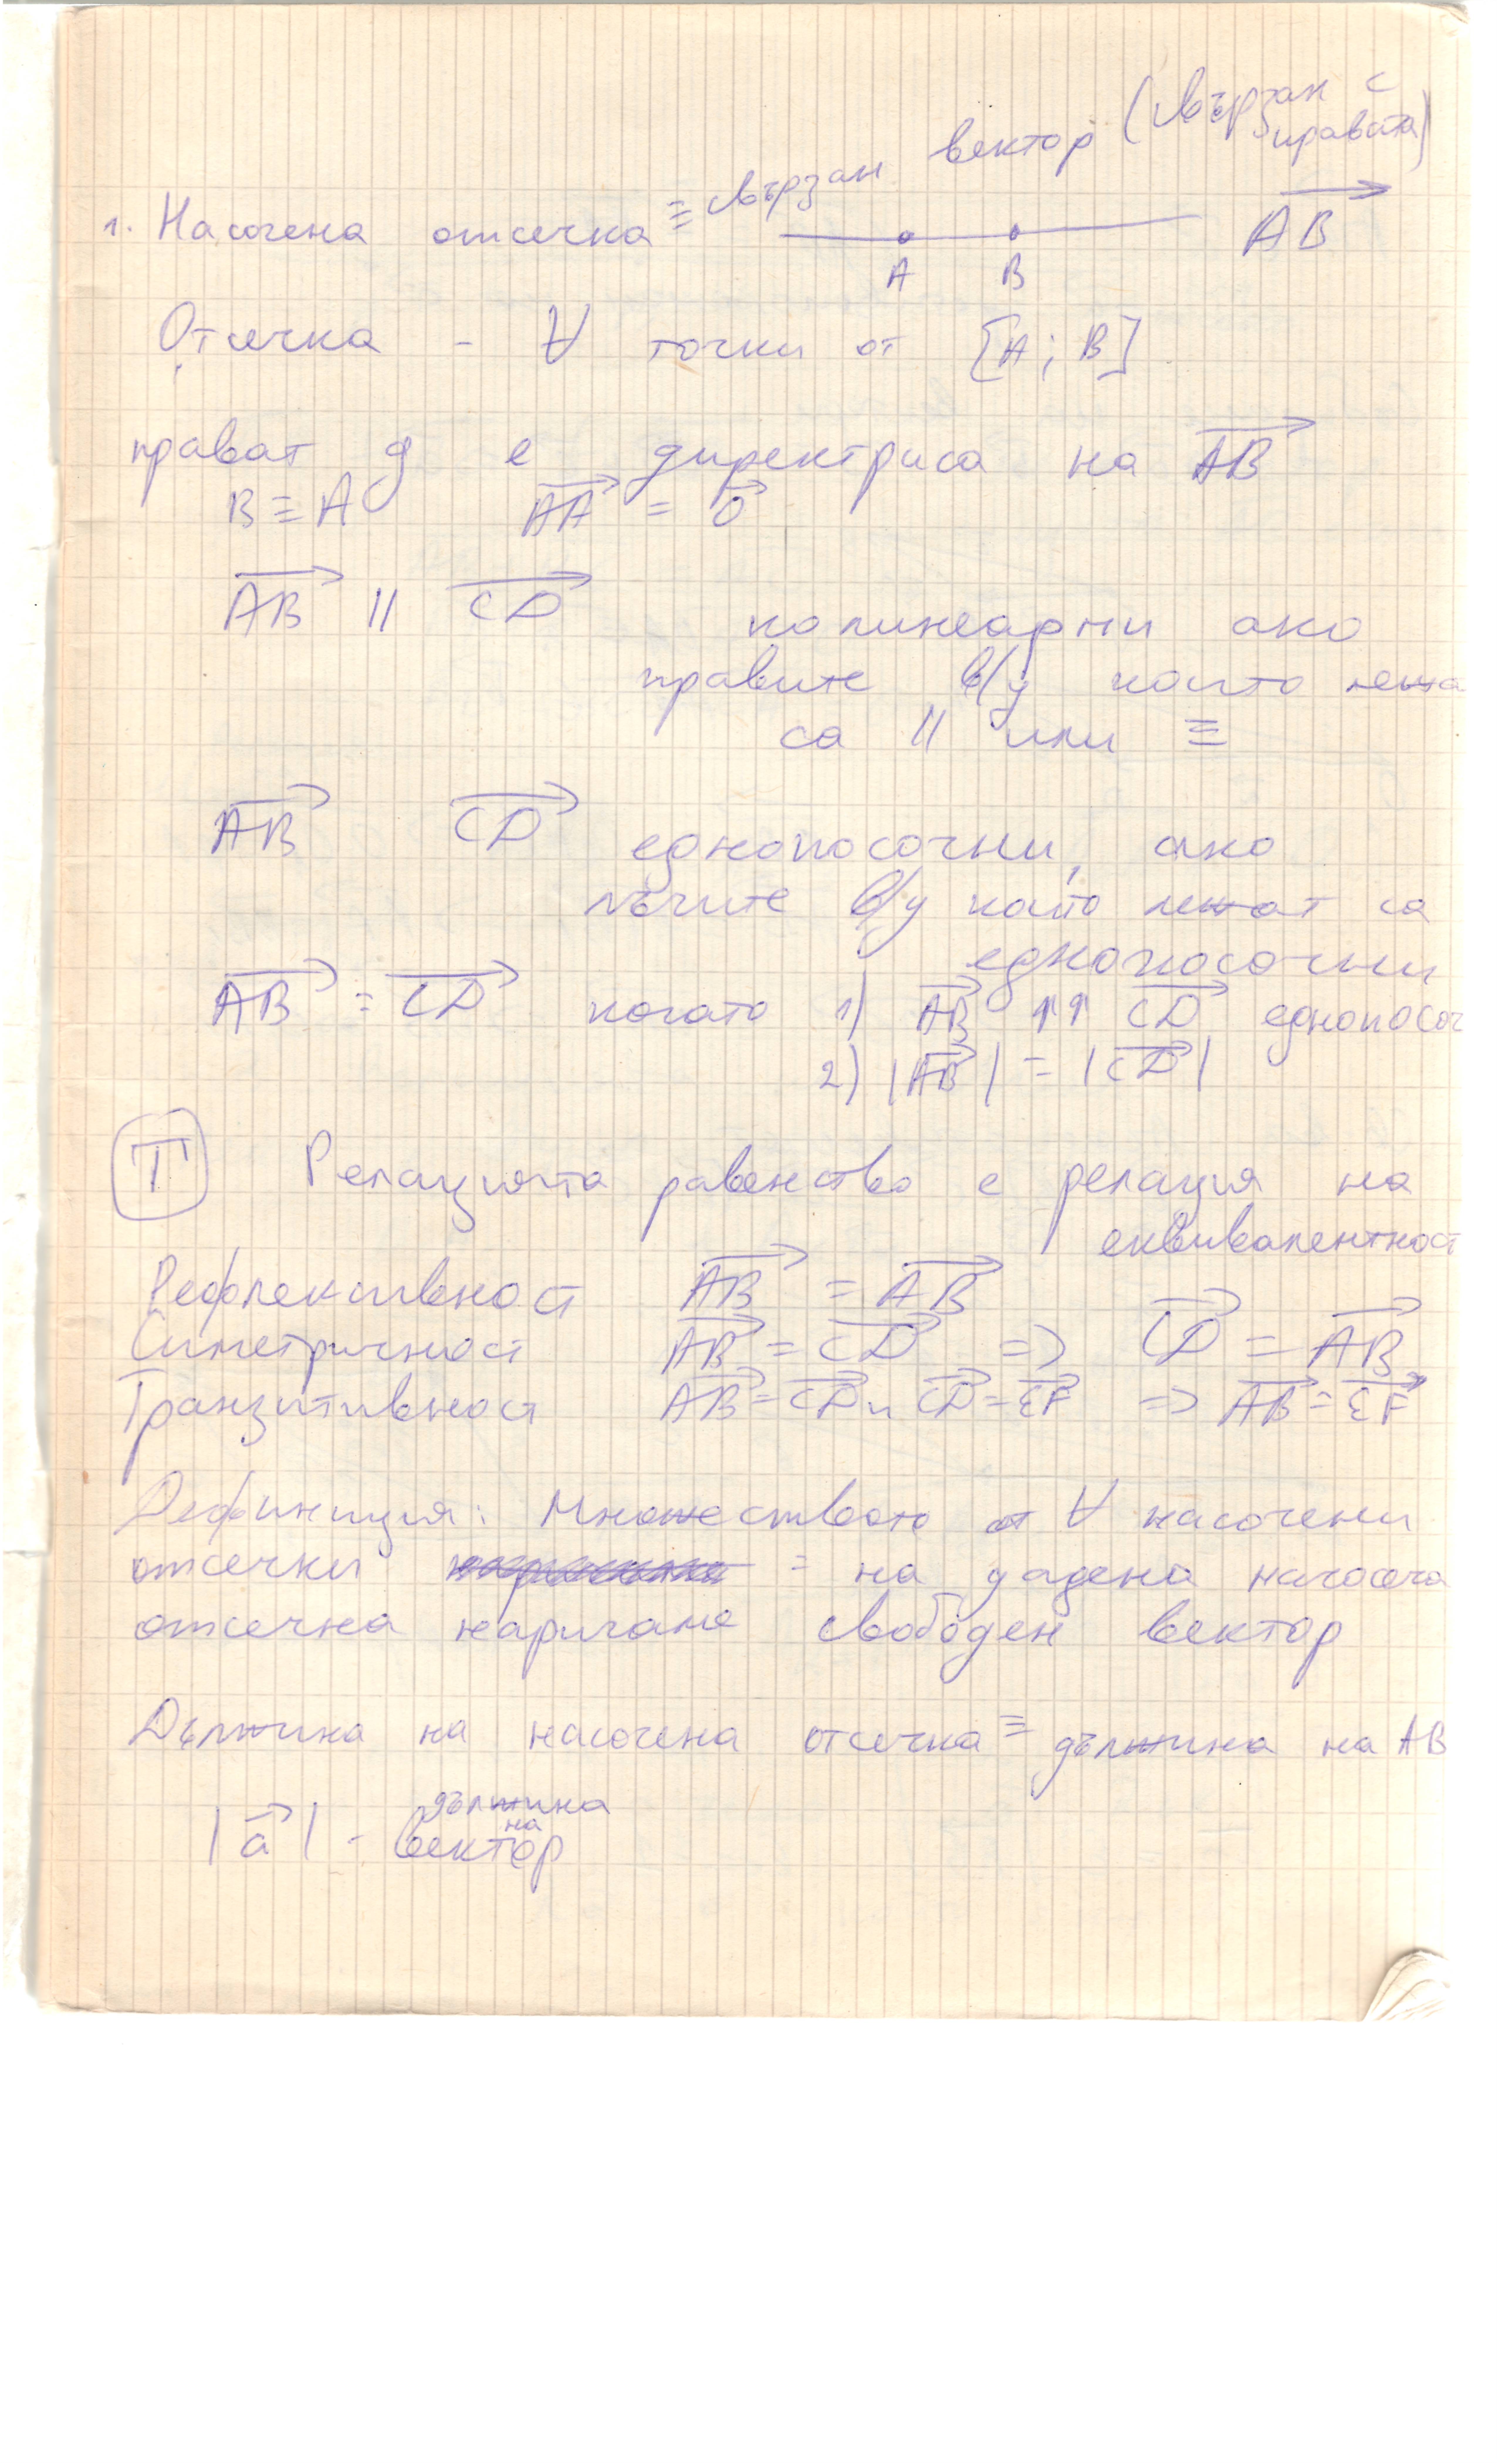 1. Насочена отсечка ≡ свързан вектор (свързан с
правата)
A B
AB→
Отсечка - ∀ точки от [A; B]
прават g е директриса на AB→
B ≡ A AA→ = 0→
AB→ || CD→ колинеарни ако
правите в/у които лежа
са || или ≡
AB→ CD→ еднопосочни, ако
лъчите в/у които лежат са
еднопосочни
AB→ = CD→ когато 1) AB→ ↑↑ CD→ еднопосоч
2) |AB→| = |CD→|
T Релацията равенство е релация на
еквивалентност
Рефлективност AB→ = AB→
Симетричност AB→ = CD→ => CD→ = AB→
Транзитивност AB→ = CD→ и CD→ = EF→ => AB→ = EF→
Дефиниция: Множеството от ∀ насочени
отсечки = на дадена насочена
отсечка наричаме свободен вектор
Дължина на насочена отсечка ≡ дължина на AB
|a→| - дължина
на
вектор